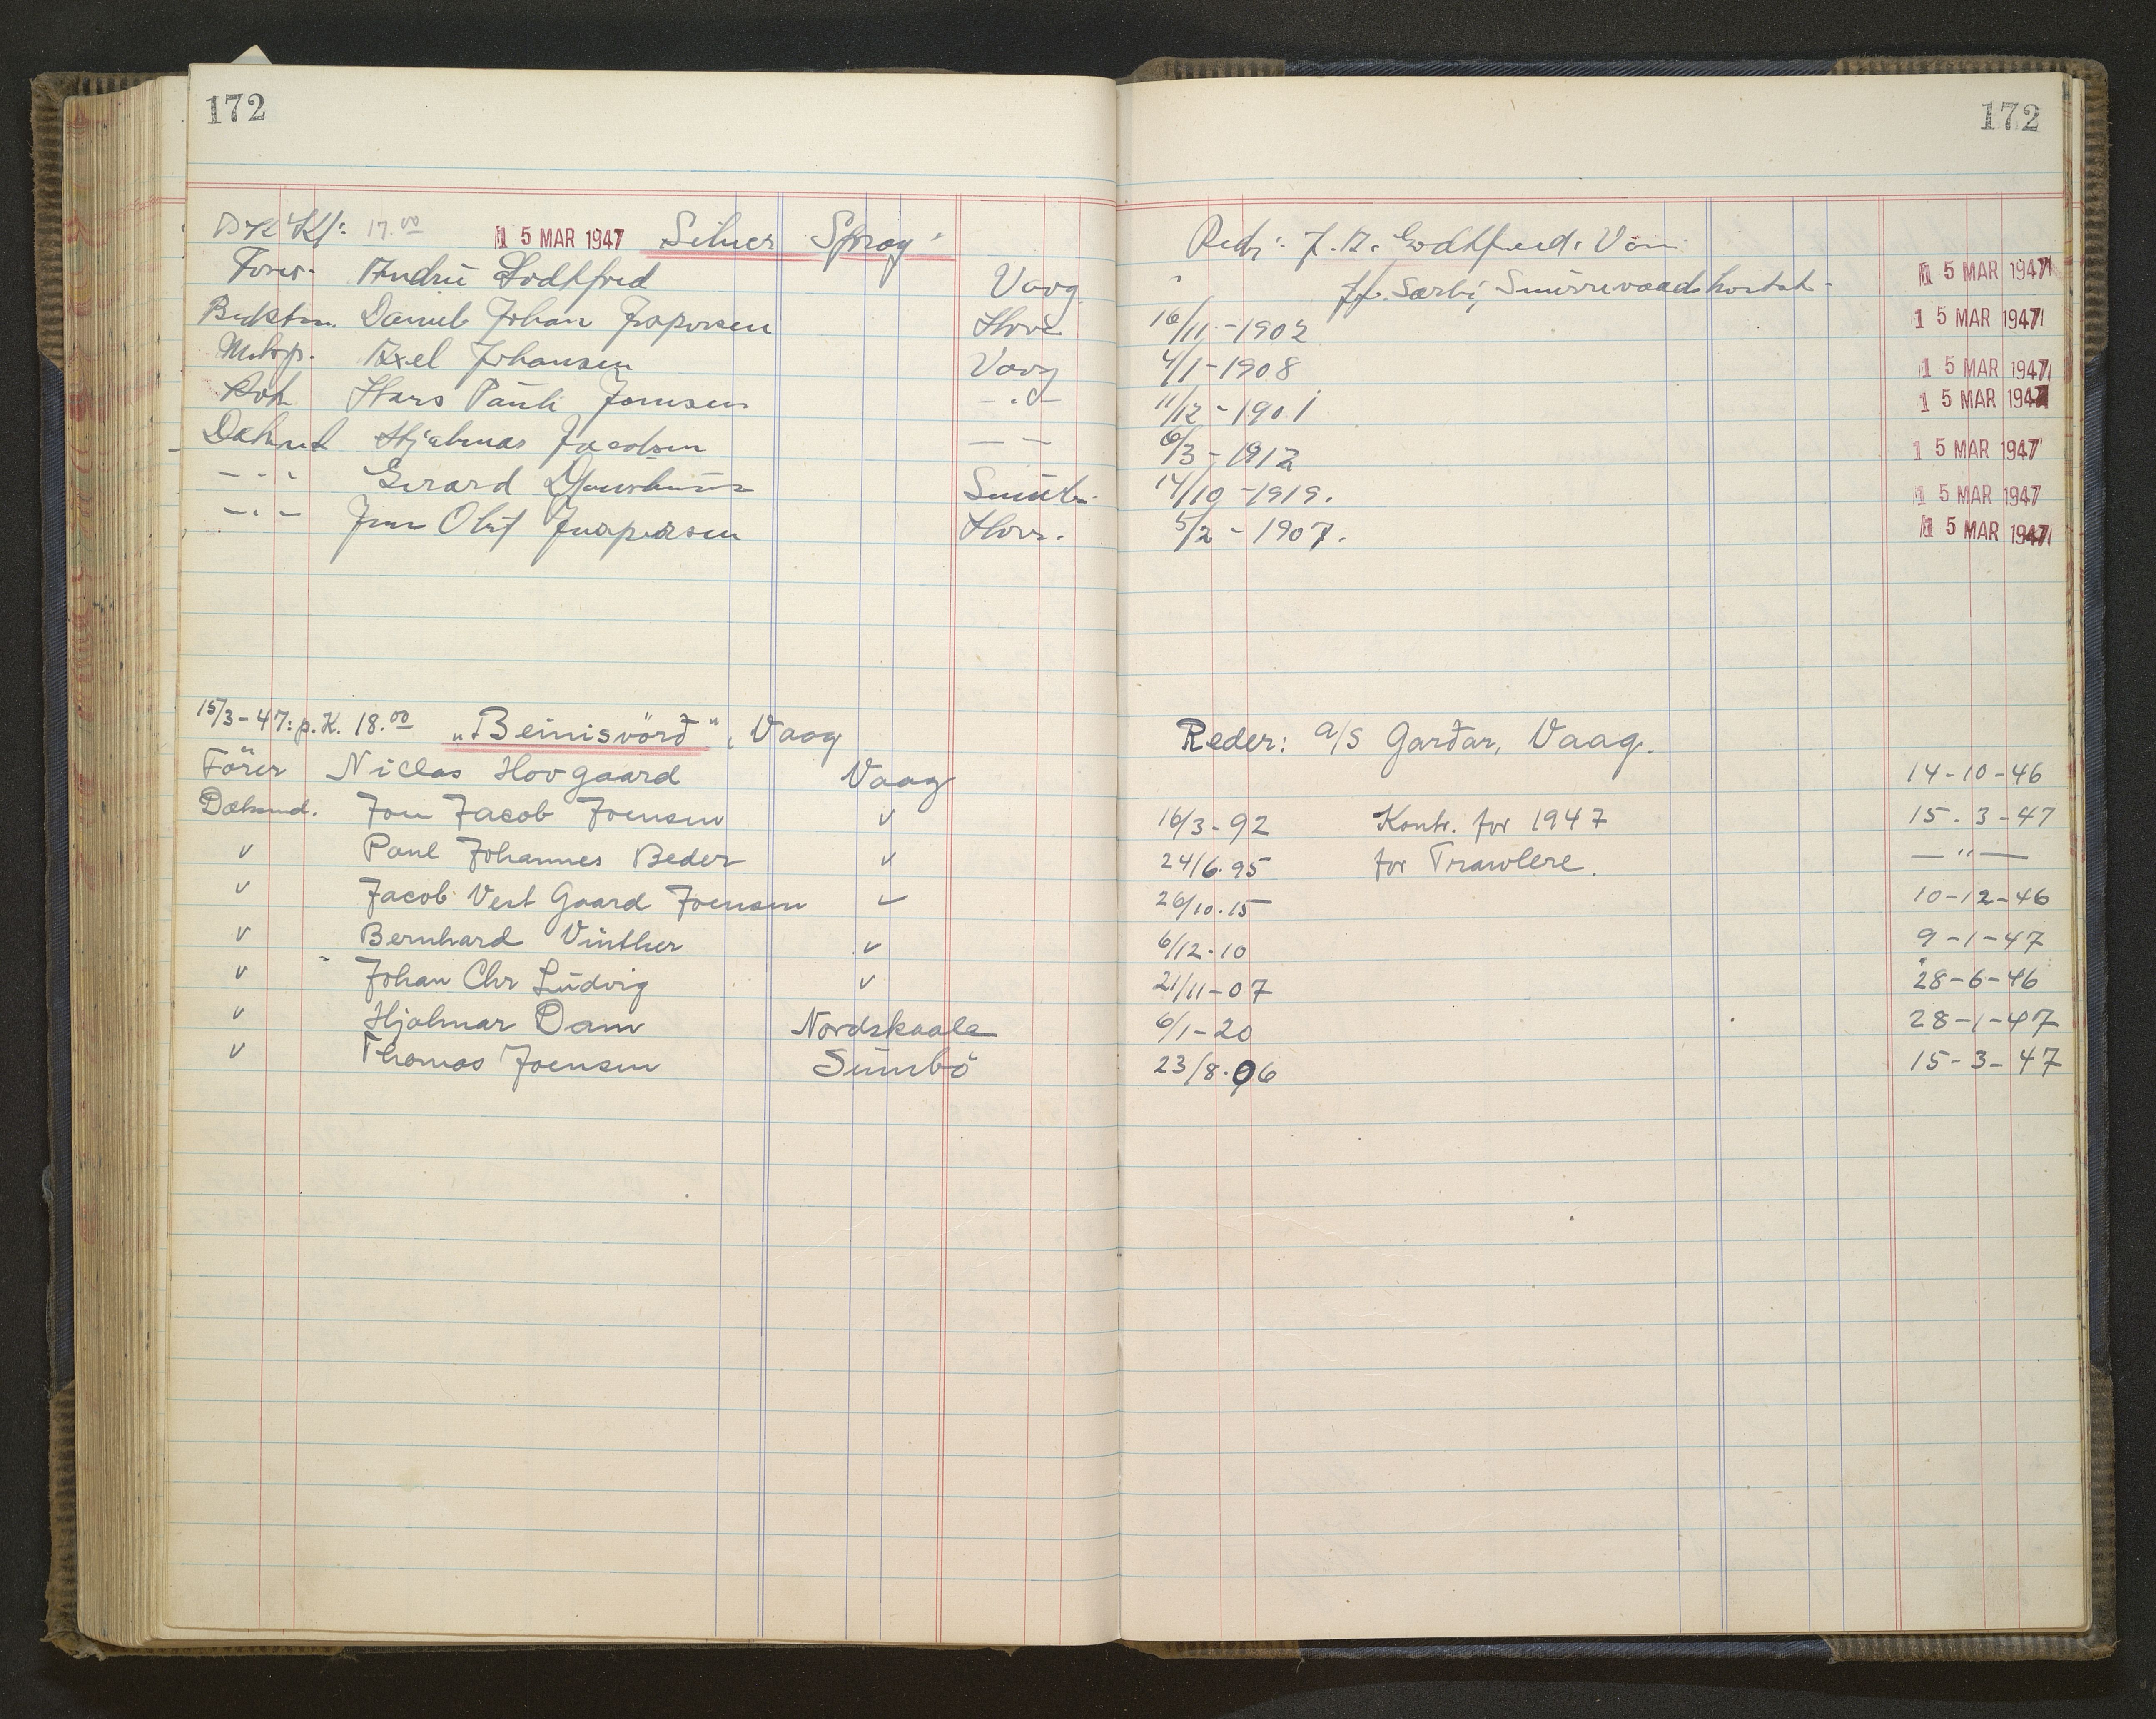 172 172
Kl: 17.00 15 MAR 1947 Silver Spray
Reder: Godtfred
Fører Andrew Godtfred Vaag 15 MAR 1947
Bedstm. Daniel Johan Jespersen Hove 16/11-1902 15 MAR 1947
Motorp. Axel Johansen Vaag 4/1-1908 15 MAR 1947
Kok Hans Pauli Joensen -"- 11/12-1901 15 MAR 1947
Dæksmd Hjalmar Jacobsen — — 6/3-1912 15 MAR 1947
-"- Gerard Sumbö 14/10-1919. 15 MAR 1947
-"- Olif Jespersen Hove. 5/2-1907. 15 MAR 1947
15/3-47: p.K. 18.00 „Beinisvörð“, Vaag
Reder: A/S Garðar, Vaag.
Förer Niclas Hovgaard Vaag 14-10-46
Dæksmd. Jon Jacob Joensen v 16/3-92 Kontr. for 1947 15-3-47
v Poul Johannes Beder v 24/6-95 for Trawlere. —"—
v Jacob Vest Gaard Joensen v 26/10-15 10-12-46
v Bernhard Vinther v 6/12-10 9-1-47
v Johan Chr Ludvig v 21/11-07 28-6-46
v Hjalmar Dam Nordskaale 6/1-20 28-1-47
v Thomas Joensen Sumbö 23/8-06 15-3-47